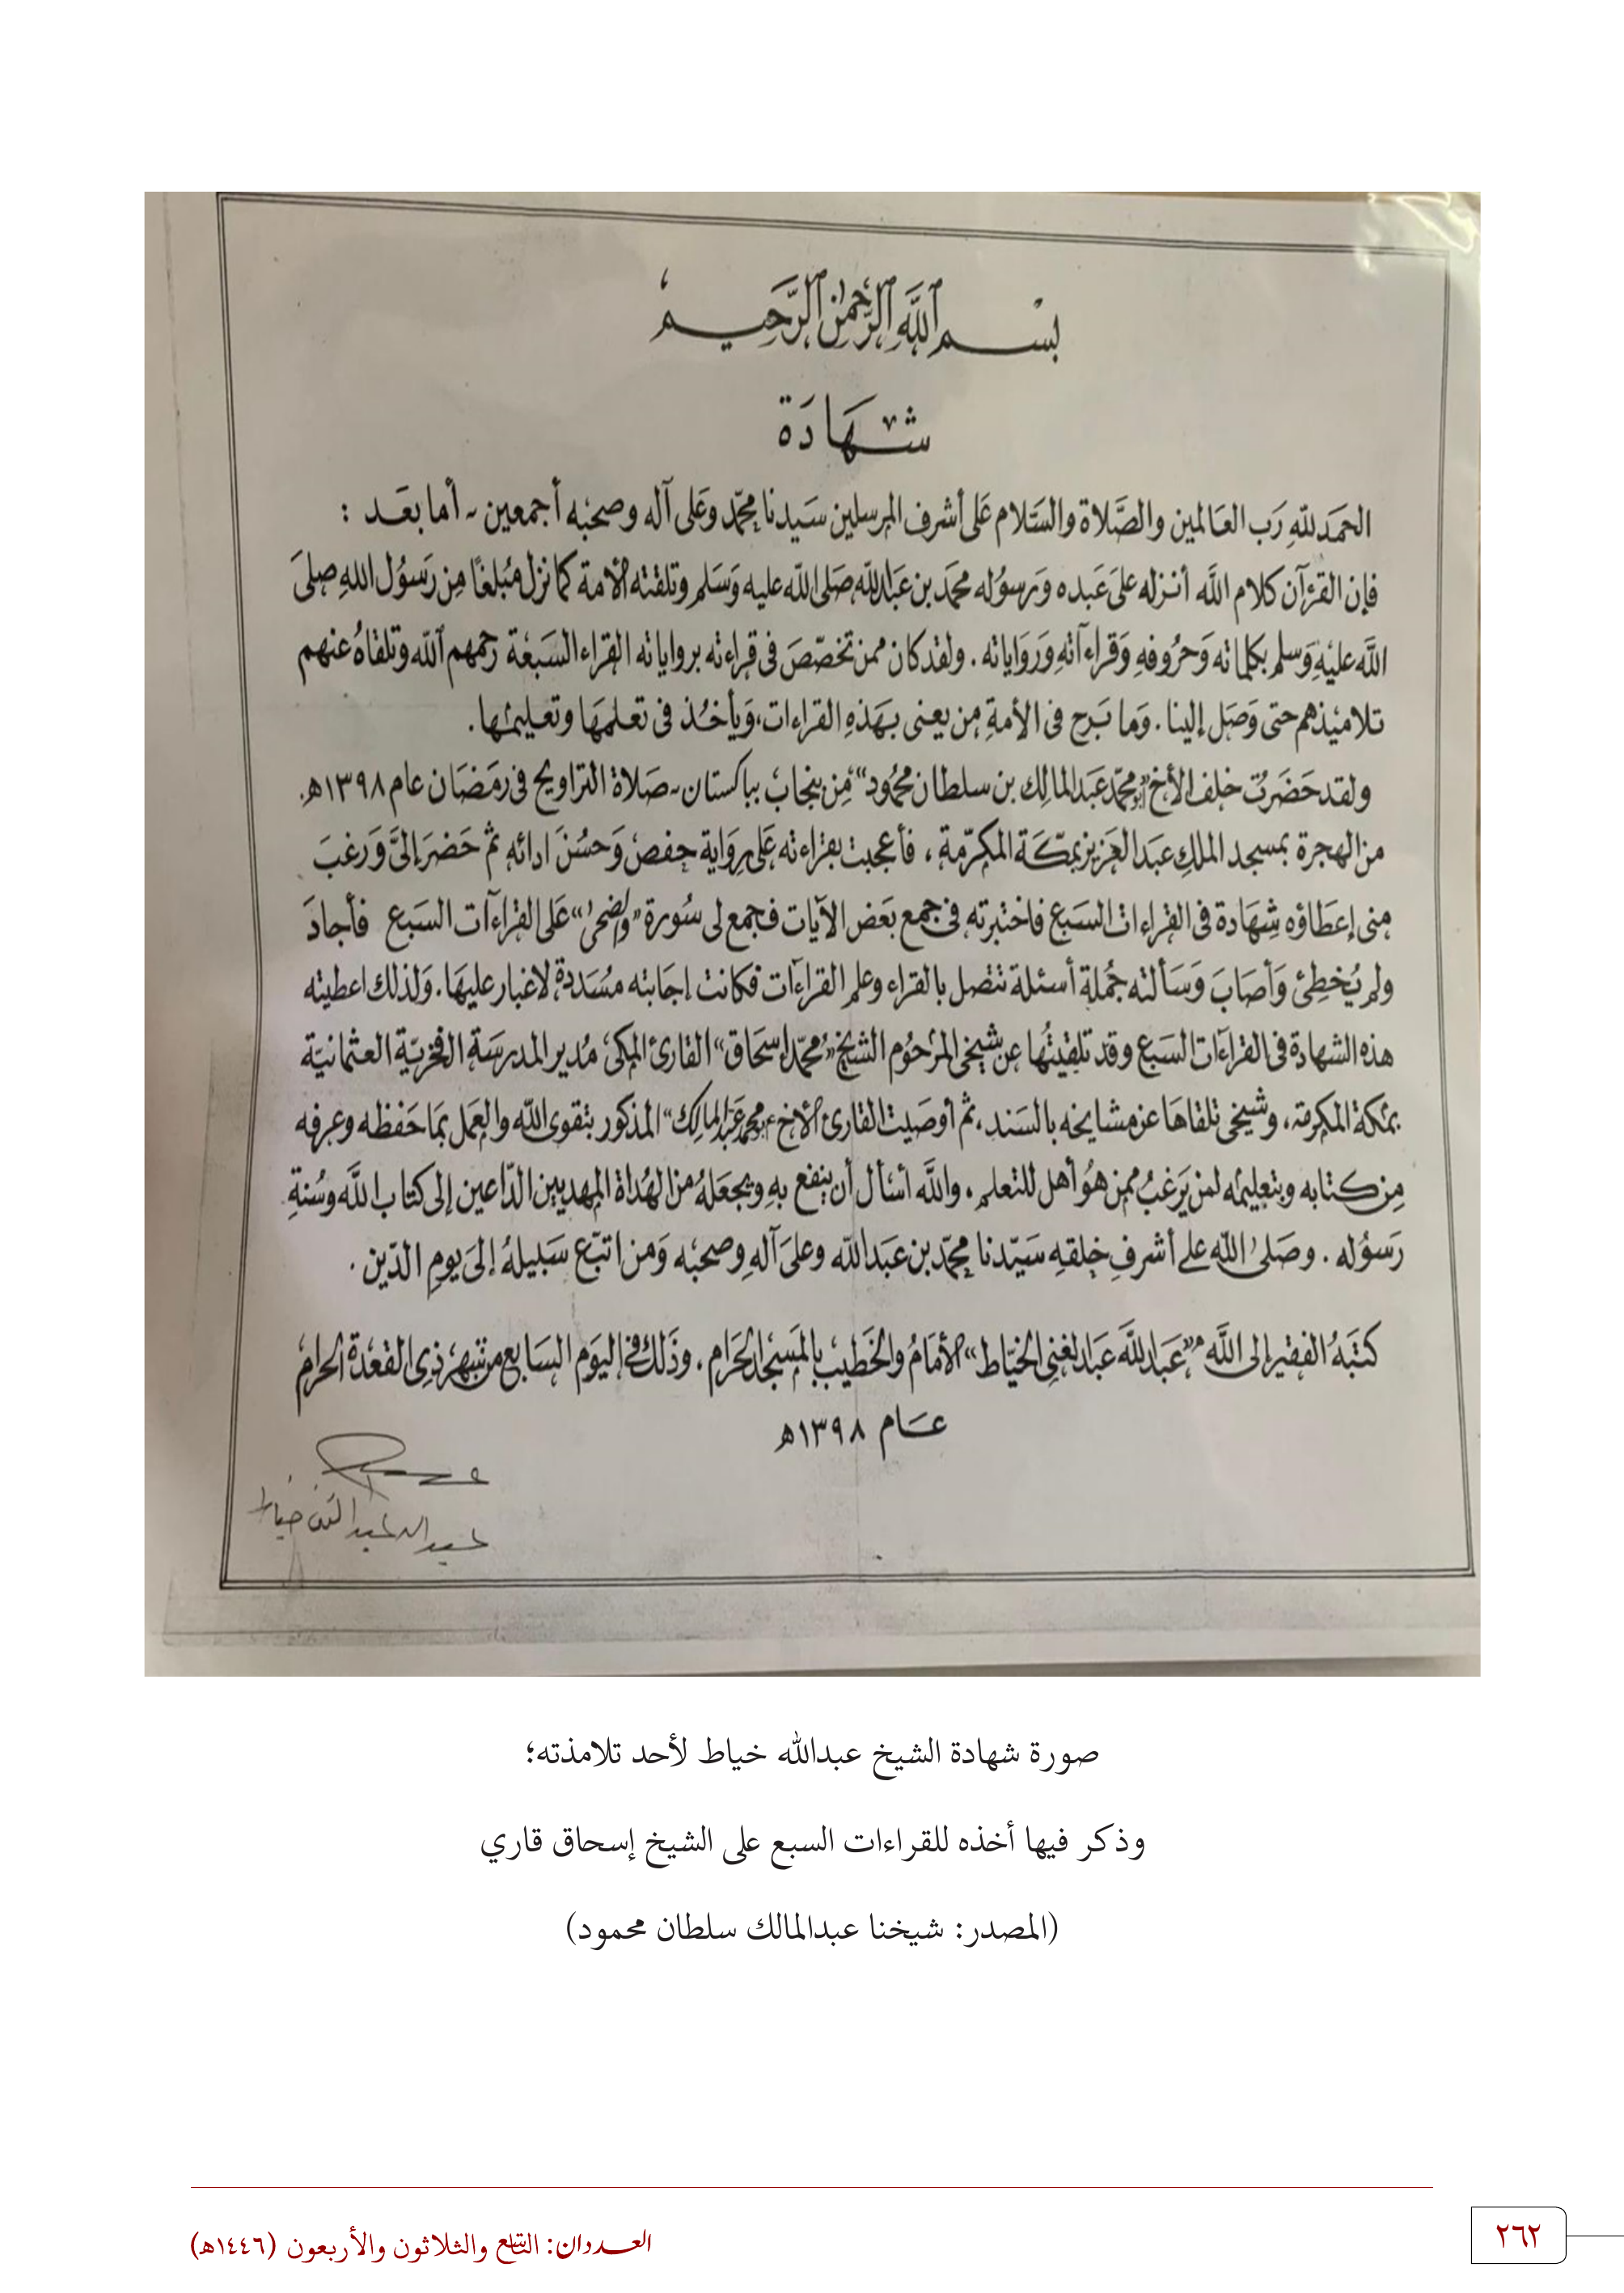 بسم الله الرحمن الرحيم
شهادة
الحمد لله رب العالمين والصلاة والسلام على أشرف المرسلين سيدنا محمد وعلى آله وصحبه أجمعين - أما بعد :
فإن القرآن كلام الله أنزله على عبده ورسوله محمد بن عبدالله صلى الله عليه وسلم وتلقته الأمة كما نزل مبلغًا من رسول الله صلى
الله عليه وسلم بكلماته وحروفه وقراءآته ورواياته . ولقد كان ممن تخصّص في قراءته برواياته القراء السبعة رحمهم الله وتلقاه عنهم
تلاميذهم حتى وصل إلينا . وما برح في الأمة من يعنى بهذه القراءات، ويأخذ في تعلمها وتعليمها .
ولقد حضرت خلف الأخ "أبو محمد عبدالمالك بن سلطان محمود" من بنجاب بباكستان - صلاة التراويح في رمضان عام ١٣٩٨هـ.
من الهجرة بمسجد الملك عبدالعزيز بمكة المكرّمة ، فأعجبت بقراءته على رواية حفص وحسن ادائه ثم حضر إليّ ورغب
منى إعطاؤه شهادة في القراءات السبع فاختبرته في جمع بعض الآيات فجمع لى سورة "والضحى" على القراءآت السبع فأجاد
ولم يخطئ وأصاب وسألته جملة أسئلة تتصل بالقراء وعلم القراءآت فكانت إجابته مسددة لاغبار عليها . ولذلك اعطيته
هذه الشهادة في القراءآت السبع وقد تلقيتها عن شيخي المرحوم الشيخ "محمد إسحاق" القارئ المكى مدير المدرسة الفخرية العثمانية
بمكة المكرمة ، وشيخى تلقاها عن مشايخه بالسند ، ثم أوصيت القارئ الأخ "أبو محمد عبدالمالك" المذكور بتقوى الله والعمل بما حفظه وعرفه
من كتابه وبتعليمه لمن يرغب ممن هو أهل للتعلم ، والله أسأل أن ينفع به ويجعله من الهداة المهديين الداعين إلى كتاب الله وسنة
رسوله . وصلى الله على أشرف خلقه سيّدنا محمّد بن عبدالله وعلى آله وصحبه ومن اتبع سبيله إلى يوم الدين .
كتبه الفقير إلى الله "عبدالله عبدالغنى الخياط" الأمام والخطيب بالمسجد الحرام ، وذلك في اليوم السابع من شهر ذى القعدة الحرام
عام ١٣٩٨هـ
عبدالله عبدالغنى خياط
صورة شهادة الشيخ عبدالله خياط لأحد تلامذته؛
وذكر فيها أخذه للقراءات السبع على الشيخ إسحاق قاري
(المصدر: شيخنا عبدالمالك سلطان محمود)
العددان: التاسع والثلاثون والأربعون (١٤٤٦هـ)
٢٦٢